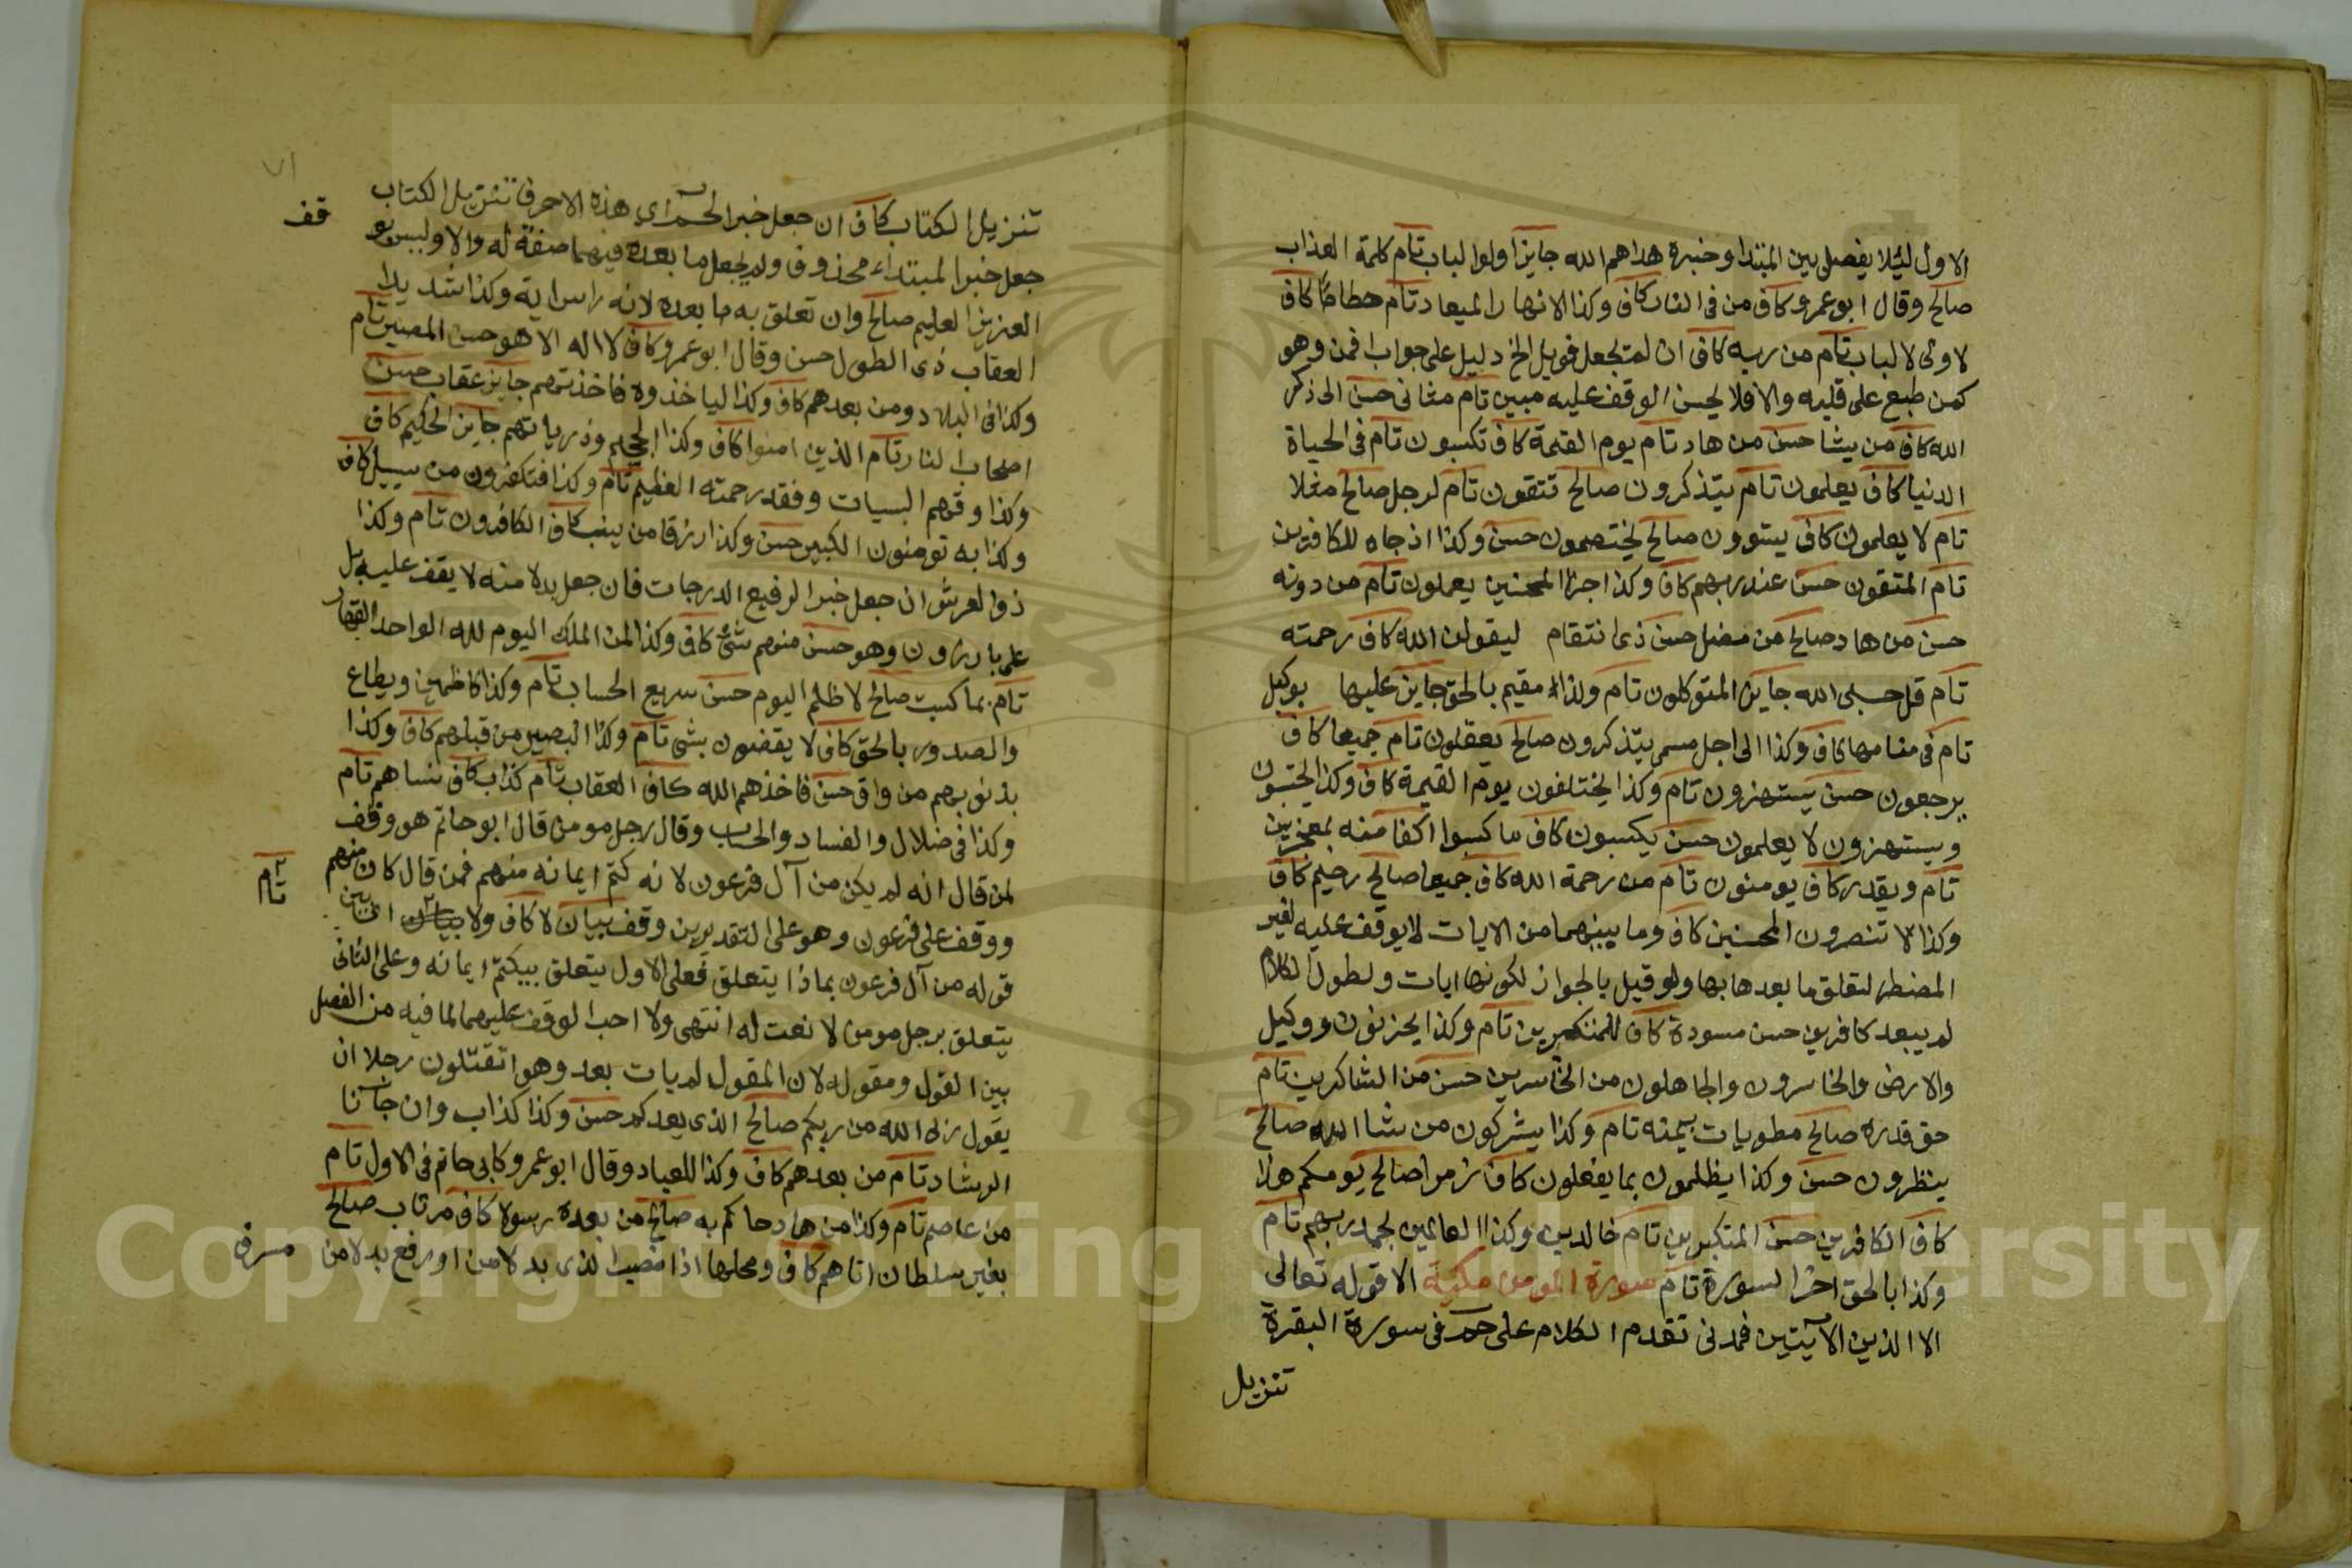 الاول ليلا يفصل بين المبتدا وخبره هداهم الله جايز اولوا الباب تام كلمة العذاب
صالح وقال ابو عمرو كاف من في النار كاف وكذا الانهار الميعاد تام حطاما كاف
لاولى لالباب تام من ربه كاف ان لم تجعل فويل الخ دليل على جواب افمن وهو
كمن طبع على قلبه والا فلا يحسن الوقف عليه مبين تام مثاني حسن الى ذكر
الله كاف من يشا حسن من هاد تام يوم القيمة كاف تكسبون تام في الحياة
الدنيا كاف يعلمون تام يتذكرون صالح تتقون تام لرجل صالح مثلا
تام لا يعلمون كاف يستوون صالح يختصمون حسن وكذا اذ جاه للكافرين
تام المتقون حسن عند ربهم كاف وكذا جزا المحسنين يعملون تام من دونه
حسن من هاد صالح من مضل حسن ذي انتقام ليقولن الله كاف رحمته
تام قل حسبي الله جايز المتوكلون تام وكذا مقيم بالحق جايز عليها بوكيل
تام في منامها كاف وكذا الى اجل مسمى يتذكرون صالح يعقلون تام جميعا كاف
يرجعون حسن يستهزون تام وكذا يختلفون يوم القيمة كاف وكذا يحتسبون
ويستهزون لا يعلمون حسن يكسبون كاف ما كسبوا اكفا منه بمعجزين
تام ويقدر كاف يومنون تام من رحمة الله كاف جميعا صالح رحيم كاف
وكذا لا تنصرون المحسنين كاف وما بينهما من الايات لا يوقف عليه لغير
المضطر لتعلق ما بعدها بها ولو قيل بالجواز لكونها ايات ولطول الكلام
لم يبعد كافرين حسن مسودة كاف للمتكبرين تام وكذا يحزنون ووكيل
والارض والخاسرون والجاهلون من الخاسرين حسن من الشاكرين تام
حق قدره صالح مطويات بيمينه تام وكذا يشركون من شا الله صالح
ينظرون حسن وكذا يظلمون بما يفعلون كاف زمرا صالح يومكم هذا
كاف الكافرين حسن المتكبرين تام خالدين وكذا العالمين بحمد ربهم تام
وكذا بالحق اخر السورة تام سورة المومن مكية الا قوله تعالى
الا الذين الآيتين فمدني تقدم الكلام على حم في سورة البقرة
تنزيل
تنزيل الكتاب كاف ان جعل خبر الحم اى هذه الاحرف تنزيل الكتاب
جعل خبر المبتداء محذوف ولم يجعل ما بعده فيهما صفة له والا وليس بو قف
العزيز العليم صالح وان تعلق به ما بعده لانه راس اية وكذا شديد
العقاب ذي الطول حسن وقال ابو عمرو كاف لا اله الا هو حسن المصير تام
وكذا في البلاد ومن بعدهم كاف وكذا لياخذوه فاخذتهم جايز عقاب حسن
اصحاب النار تام الذين امنوا كاف وكذا الجحيم وذرياتهم جايز الحكيم كاف
وكذا وقهم السيات وفقد رحمته العظيم تام وكذا فتكفرون من سبيل كاف
وكذا به تومنون الكبير حسن وكذا رزقا من ينيب كاف الكافرون تام وكذا
ذو العرش ان جعل خبر الرفيع الدرجات فان جعل بدلا منه لا يقف عليه بل
على بارزون وهو حسن منهم شئ كاف وكذا لمن الملك اليوم لله الواحد القهار
تام بما كسبت صالح لا ظلم اليوم حسن سريع الحساب تام وكذا كاظمين ويطاع
والصدور بالحق كاف لا يقضون بشي تام وكذا البصير من قبلهم كاف وكذا
بذنوبهم من واق حسن فاخذهم الله كاف العقاب تام كذاب كاف نساهم تام
وكذا في ضلال والفساد والحساب وقال رجل مومن قال ابو حاتم هو وقف تام
لمن قال انه لم يكن من آل فرعون لانه كتم ايمانه منهم فمن قال كان منهم
ووقف على فرعون وهو على التقديرين وقف بيان لا كاف ولا
قوله من آل فرعون بماذا يتعلق فعلى الاول يتعلق بيكتم ايمانه وعلى الثاني
يتعلق برجل مومن لا نعت له انتهى ولا احب الوقف عليهما لما فيه من الفصل
بين القول ومقوله لان المقول لم يات بعد وهو اتقتلون رجلا ان
يقول ربي الله من ربكم صالح الذي يعدكم حسن وكذا كذاب وان جآنا
الرشاد تام من بعدهم كاف وكذا للعباد وقال ابو عمرو كابي حاتم في الاول تام
من عاصم تام وكذا من هاد جاكم به صالح من بعده رسولا كاف مرتاب صالح
بغير سلطان اتاهم كاف ومحلها اذا نصب الذي بدلا من او رفع بدلا من مسرف
Copyright © King Saud University